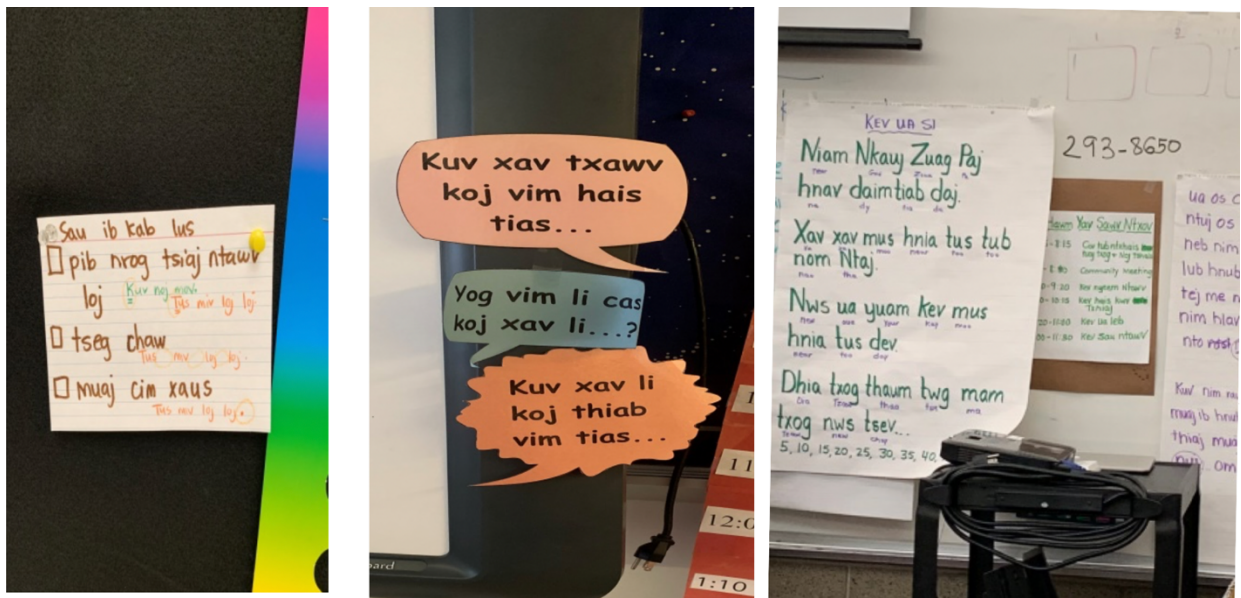 Sau ib kab lus
pib nrog tsiaj ntawv
loj
Kuv noj mov.
Tus miv loj loj.
tseg chaw
Tus miv loj loj.
muaj cim xaus
Tus miv loj loj.
Kuv xav txawv
koj vim hais
tias...
Yog vim li cas
koj xav li...?
Kuv xav li
koj thiab
vim tias...
11
12:0
1:10
ard
KEV UA SI
Niam Nkauj Zuag Paj
hnav daimtiab daj.
Xav xav mus hnia tus tub
nom Ntaj.
Nws ua yuam kev mus
hnia tus dev.
Dhia txog thaum twg mam
txog nws tsev...
5, 10, 15, 20, 25, 30, 35, 40,
293-8650
Xav Sawv Ntxov
8:15
Community Meeting
9:20 Kev nyeem ntawv
10:15 Kev hais kwv
Txhiaj
11:00 Kev ua leb
11:30 Kev Sau ntawv
ua os
ntuj os
neb nim
lub hnub
tej me n
nim hlav
nto
Kuv nim
muaj ib hnu
thiaj mua
om